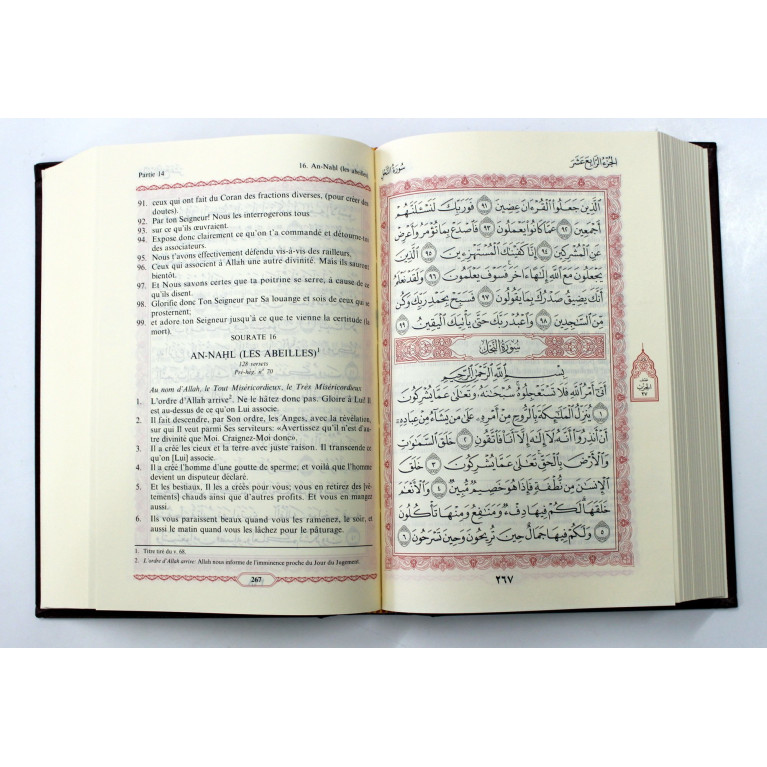 Partie 14
16. An-Naḥl (les abeilles)
91. ceux qui ont fait du Coran des fractions diverses, (pour créer des
doutes).
92. Par ton Seigneur! Nous les interrogerons tous
93. sur ce qu'ils œuvraient.
94. Expose donc clairement ce qu'on t'a commandé et détourne-toi
des associateurs.
95. Nous t'avons effectivement défendu vis-à-vis des railleurs,
96. Ceux qui associent à Allah une autre divinité. Mais ils sauront
bientôt.
97. Et Nous savons certes que ta poitrine se serre, à cause de ce
qu'ils disent.
98. Glorifie donc Ton Seigneur par Sa louange et sois de ceux qui se
prosternent;
99. et adore ton Seigneur jusqu'à ce que te vienne la certitude (la
mort).
SOURATE 16
AN-NAḤL (LES ABEILLES)¹
128 versets
Pré-hég. n° 70
Au nom d'Allah, le Tout Miséricordieux, le Très Miséricordieux
1. L'ordre d'Allah arrive². Ne le hâtez donc pas. Gloire à Lui! Il
est au-dessus de ce qu'on Lui associe.
2. Il fait descendre, par Son ordre, les Anges, avec la révélation,
sur qui Il veut parmi Ses serviteurs: «Avertissez qu'il n'est d'au-
tre divinité que Moi. Craignez-Moi donc».
3. Il a créé les cieux et la terre avec juste raison. Il transcende ce
qu'on [Lui] associe.
4. Il a créé l'homme d'une goutte de sperme; et voilà que l'homme
devient un disputeur déclaré.
5. Et les bestiaux, Il les a créés pour vous; vous en retirez des [vê-
tements] chauds ainsi que d'autres profits. Et vous en mangez
aussi.
6. Ils vous paraissent beaux quand vous les ramenez, le soir, et
aussi le matin quand vous les lâchez pour le pâturage.
1. Titre tiré du v. 68.
2. L'ordre d'Allah arrive: Allah nous informe de l'imminence proche du Jour du Jugement.
267
الجزء الرابع عشر
سورة النحل
الَّذِينَ جَعَلُوا الْقُرْءَانَ عِضِينَ ٩١ فَوَرَبِّكَ لَنَسْـَٔلَنَّهُمْ
أَجْمَعِينَ ٩٢ عَمَّا كَانُوا يَعْمَلُونَ ٩٣ فَاصْدَعْ بِمَا تُؤْمَرُ وَأَعْرِضْ
عَنِ الْمُشْرِكِينَ ٩٤ إِنَّا كَفَيْنَاكَ الْمُسْتَهْزِءِينَ ٩٥ الَّذِينَ
يَجْعَلُونَ مَعَ اللَّهِ إِلَٰهًا ءَاخَرَ فَسَوْفَ يَعْلَمُونَ ٩٦ وَلَقَدْ نَعْلَمُ
أَنَّكَ يَضِيقُ صَدْرُكَ بِمَا يَقُولُونَ ٩٧ فَسَبِّحْ بِحَمْدِ رَبِّكَ وَكُن
مِّنَ السَّاجِدِينَ ٩٨ وَاعْبُدْ رَبَّكَ حَتَّىٰ يَأْتِيَكَ الْيَقِينُ ٩٩
سورة النحل
بِسْمِ اللَّهِ الرَّحْمَٰنِ الرَّحِيمِ
أَتَىٰ أَمْرُ اللَّهِ فَلَا تَسْتَعْجِلُوهُ سُبْحَانَهُ وَتَعَالَىٰ عَمَّا يُشْرِكُونَ
١ يُنَزِّلُ الْمَلَائِكَةَ بِالرُّوحِ مِنْ أَمْرِهِ عَلَىٰ مَن يَشَاءُ مِنْ عِبَادِهِ
أَنْ أَنذِرُوا أَنَّهُ لَا إِلَٰهَ إِلَّا أَنَا فَاتَّقُونِ ٢ خَلَقَ السَّمَاوَاتِ
وَالْأَرْضَ بِالْحَقِّ تَعَالَىٰ عَمَّا يُشْرِكُونَ ٣ خَلَقَ
الْإِنسَانَ مِن نُّطْفَةٍ فَإِذَا هُوَ خَصِيمٌ مُّبِينٌ ٤ وَالْأَنْعَامَ
خَلَقَهَا لَكُمْ فِيهَا دِفْءٌ وَمَنَافِعُ وَمِنْهَا تَأْكُلُونَ
٥ وَلَكُمْ فِيهَا جَمَالٌ حِينَ تُرِيحُونَ وَحِينَ تَسْرَحُونَ ٦
٢٦٧